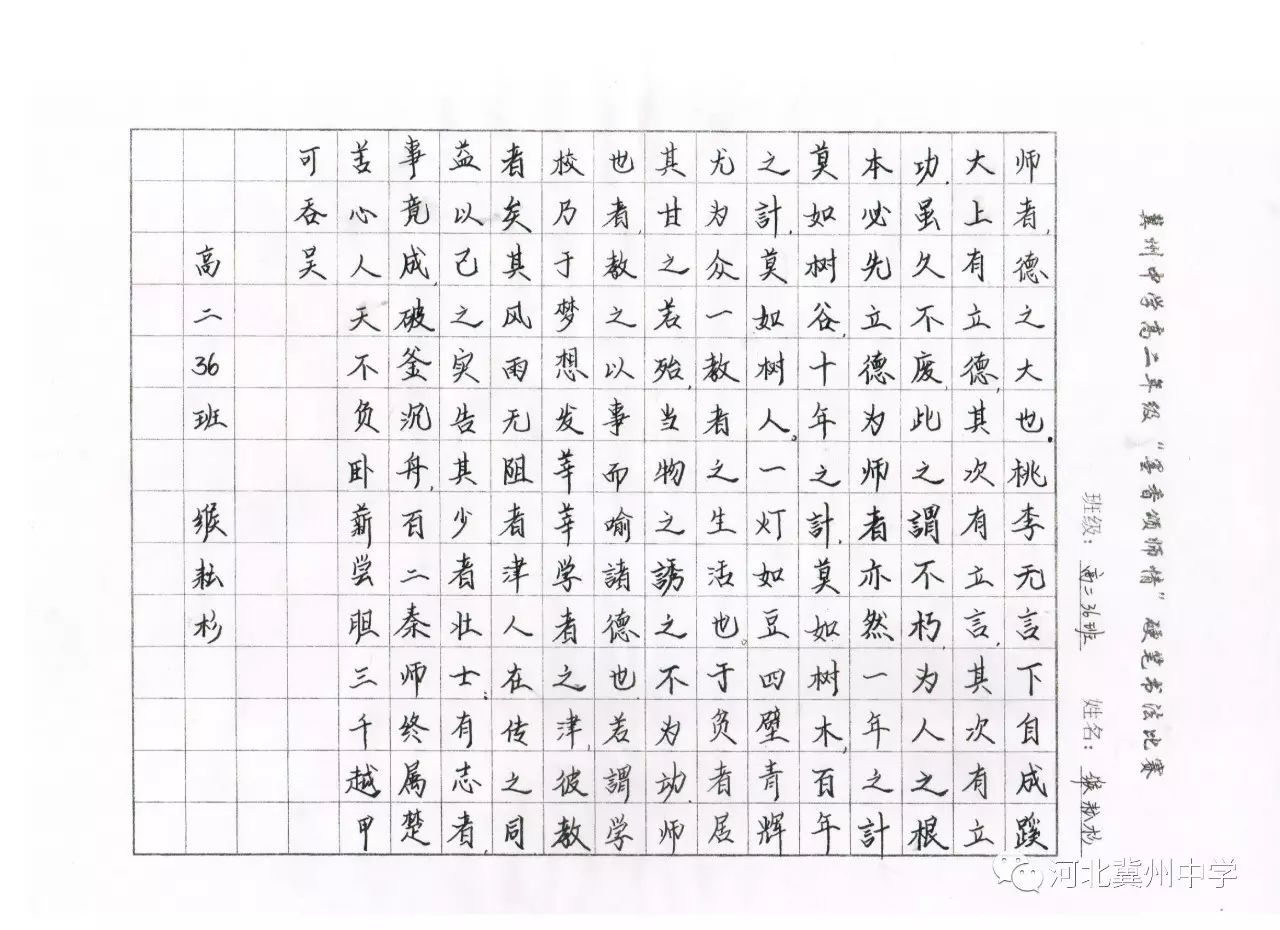 冀州中学高二年级“墨香颂师情”硬笔书法比赛
班级：高二36班 姓名：
师者，德之大也。桃李无言下自成蹊
大上有立德，其次有立言，其次有立
功，虽久不废，此之謂不朽，为人之根
本必先立德为师者亦然一年之計
莫如树谷，十年之計，莫如树木，百年
之計，莫如树人。一灯如豆四壁青辉
尤为众一教者之生活也。于负者居
其甘之若殆，当物之誘之不为动，师
也者，教之以事而喻諸德也若謂学
校乃于梦想发莘莘学者之津，彼教
者矣其风雨无阻者津人在传之同
益以己之实告其少者壮士；有志者，
事竟成，破釜沉舟，百二秦师终属楚
苦心人天不负卧薪尝胆三千越甲
可吞吴
高二36班 耘杉
河北冀州中学